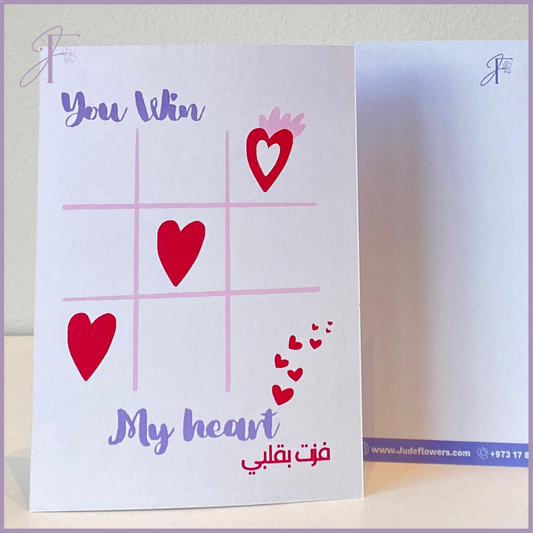 You Win
My heart
فزت بقلبي
www.Judeflowers.com +973 17 8